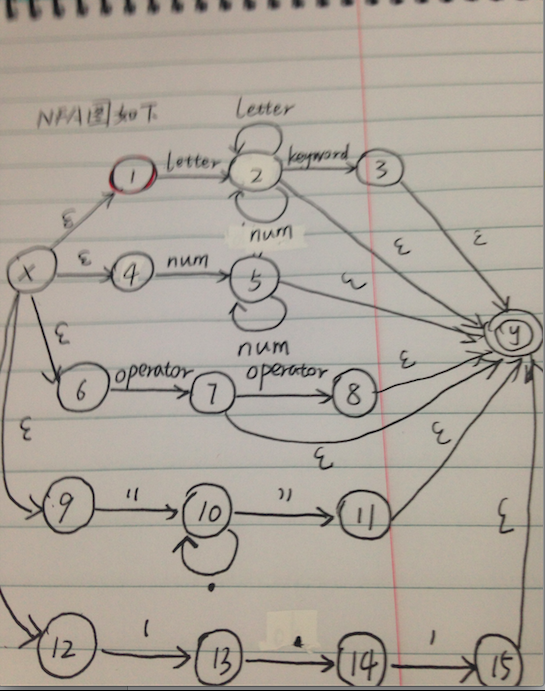 NFA图如下
letter
1 letter 2 keyword 3
ε
num
ε ε
X ε 4 num 5 ε
y
ε
num
6 operator 7 operator 8 ε
ε
ε ε
9 " 10 " 11
ε
.
12 ' 13 . 14 ' 15